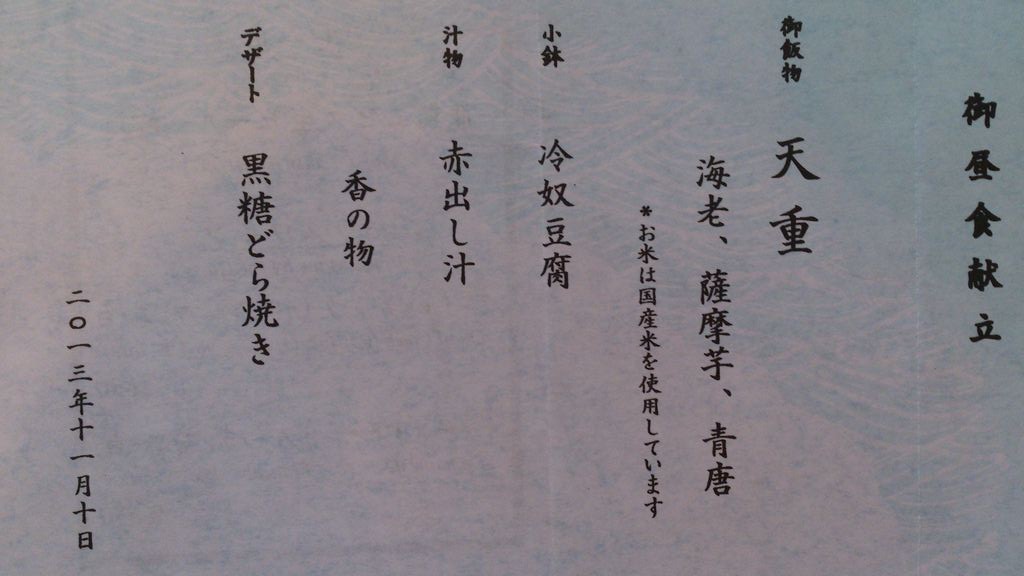 御昼食献立
御飯物 天重
海老、薩摩芋、青唐
*お米は国産米を使用しています
小鉢 冷奴豆腐
汁物 赤出し汁
香の物
デザート 黒糖どら焼き
二〇一三年十一月十日